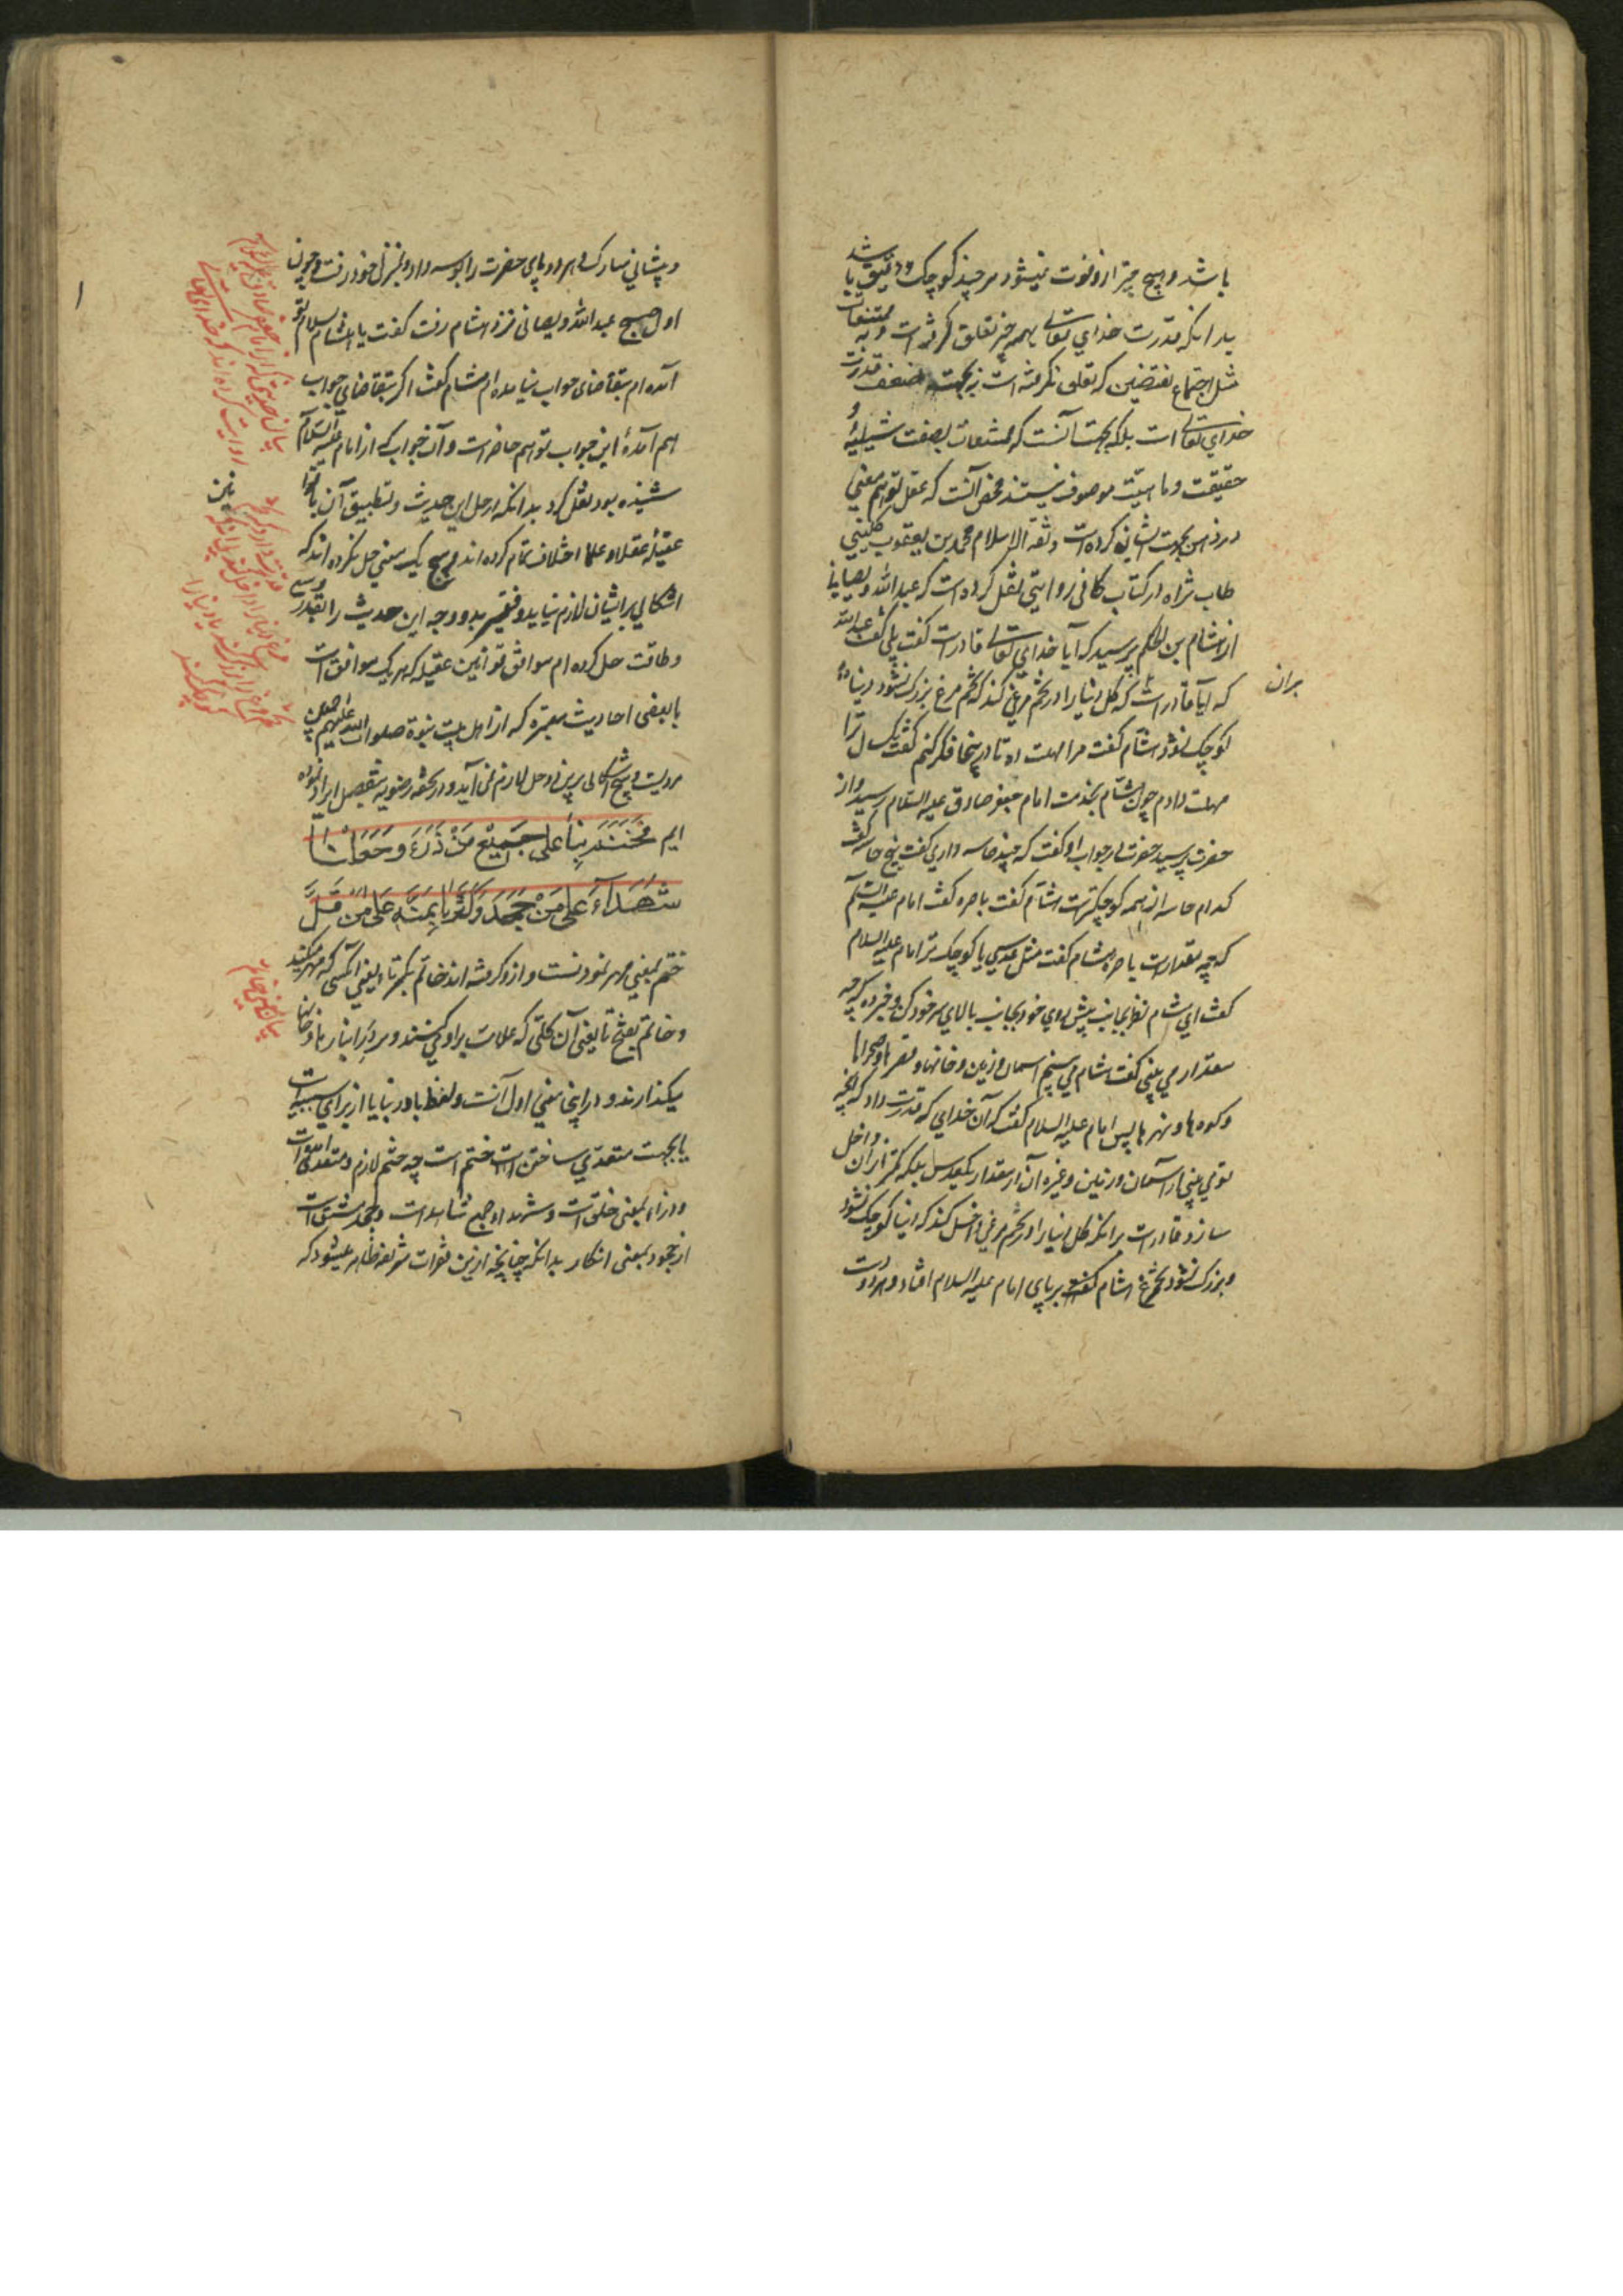 باشد و هیچ چیز ازو فوت نمیشود هر چیز کوچک و دقیق باشد
بدانکه قدرت خدای تعالی بهمه چیز تعلق گرفته است و به ممتنعات
مثل اجتماع نقیضین که تعلق نگرفته است نه بجهت ضعف قدرت
خدای تعالی است بلکه بجهت آنست که ممتنعات بصفت شیئیه و
حقیقت و ماهیت موصوف نیستند محض آنست که عقل توهم معنی
در ذهن بجهت ایشان کرده است و ثقة الاسلام محمد بن یعقوب کلینی
طاب ثراه در کتاب کافی روایتی نقل کرده است که عبد الله دیصانی
از هشام بن الحکم پرسید که آیا خدای تعالی قادر است گفت بلی گفت عبد الله
که آیا قادر است که کل دنیا را در تخم مرغی کند که تخم مرغ بزرگ نشود و دنیا
بران
کوچک نشود هشام گفت مرا مهلت ده تا درینجا فکر کنم گفت یکسال ترا
مهلت دادم چون هشام بخدمت امام جعفر صادق علیه السلام رسید و از
حضرت پرسید حضرت در جواب او گفت که چند حاسه داری گفت پنج حاسه گفت
کدام حاسه از همه کوچکتر است هشام گفت باصره گفت امام علیه السلام
که چه مقدار است باصره هشام گفت مثل عدسی یا کوچک تر امام علیه السلام
گفت ای هشام نظر بجانب پیش روی خود و بجانب بالای سر خود کن و خبر ده که چه
مقدار می بینی گفت هشام می بینم آسمان و زمین و خانها و قصرها و صحراها
و کوه ها و نهرها پس امام علیه السلام گفت که آن خدای که قدرت داد که آنچه
تو می بینی از آسمان و زمین و غیره آن در مقدار یکعدس بلکه کمتر از آن داخل
سازد قادر است برانکه کل دنیا را در تخم مرغی داخل کند که دنیا کوچک نشود
و بزرگ نشود تخم مرغ هشام بر پای امام علیه السلام افتاد و هر دو دست
و پیشانی مبارک و هر دو پای حضرت را بوسه داد و بمنزل خود رفت و چون
اول صبح عبد الله دیصانی نزد هشام رفت گفت یا هشام بسلام تو
آمده ام بتقاضای جواب نیامده ام هشام گفت اگر بتقاضای جواب
هم آمدهٔ این جواب تو هم حاضر است و آن جواب که از امام علیه السلام
شنیده بود نقل کرد بدانکه در حل این حدیث و تطبیق آن با قوانین
عقیله عقلا و علما اختلاف تمام کرده اند و هیچ یک معنی حل نکرده اند که
اشکالی بر ایشان لازم نیاید و فقیر بدو وجه این حدیث را بقدر وسع
و طاقت حل کرده ام موافق قوانین عقیله که هر یک موافق است
با بعضی احادیث معتبره که از اهل بیت نبوة صلوات الله علیهم اجمعین
مرویست و هیچ اشکالی برین دو حل لازم نمی آید و در تحفه رضویه بتفصیل ایراد نموده
ایم فَخَتَمَ بِنا عَلی جَمیعِ مَنْ ذَرَءَ وَ جَعَلَنا
شُهَداءَ عَلی مَنْ جَحَدَ وَ کَثَّرَنا بِمَنِّهِ عَلی مَنْ قَلَّ
ختم بمعنی مهر نمودنست و ازو گرفته اند خاتم بکسر تا یعنی آنکسی که مهر میکند
و خاتم بفتح تا یعنی آن گلی که علامت برا و میکنند و بر در انبارها و خانها
میگذارند و در اینجا معنی اول آنست و لفظ با در بنا یا از برای سببیت است
یا بجهت متعدی ساختن است ختم است چه ختم لازم و متعدی آمده است
و ذراء بمعنی خلق است و شهداء جمع شاهد است و جحد مشتق است
از جحود بمعنی انکار بدانکه چنانچه ازین فقرات شریفه ظاهر میشود که